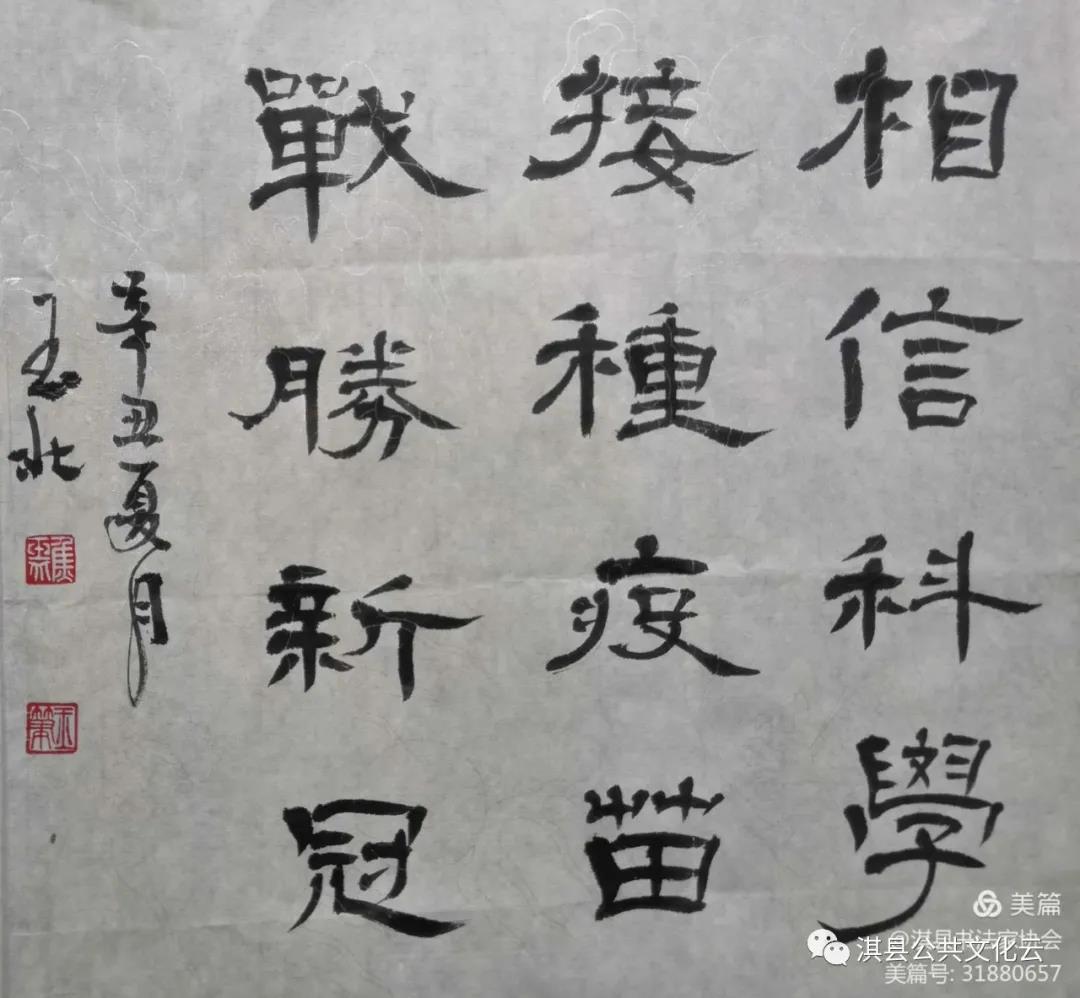 相信科學
接種疫苗
戰勝新冠
辛丑夏月
美篇
@淇县书法家协会
淇县公共文化云
美篇号: 31880657